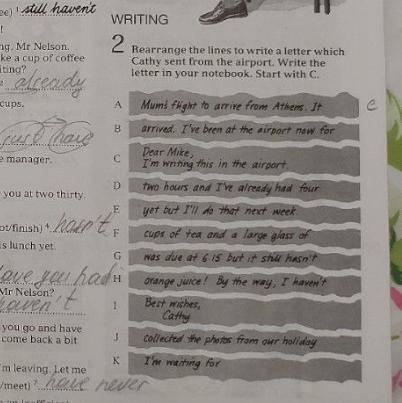 ee) ¹ still haven't
!
WRITING
ng, Mr Nelson.
ke a cup of coffee
iting?
² already
cups.
just have
e manager.
you at two thirty.
ot/finish) ⁴ hasn't
is lunch yet.
have you had
Mr Nelson?
haven't
you go and have
come back a bit
'm leaving. Let me
/meet) ⁷ have never
2 Rearrange the lines to write a letter which
Cathy sent from the airport. Write the
letter in your notebook. Start with C.
A Mum's flight to arrive from Athens. It
c
B arrived. I've been at the airport now for
C Dear Mike,
I'm writing this in the airport.
D two hours and I've already had four
E yet but I'll do that next week.
F cups of tea and a large glass of
G was due at 6 15 but it still hasn't
H orange juice! By the way, I haven't
I Best wishes,
Cathy
J collected the photos from our holiday
K I'm waiting for